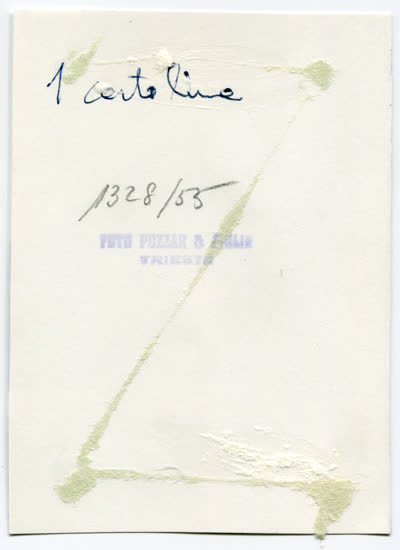 1 cartolina
1328/55
FOTO POZZAR & FIGLIO
TRIESTE